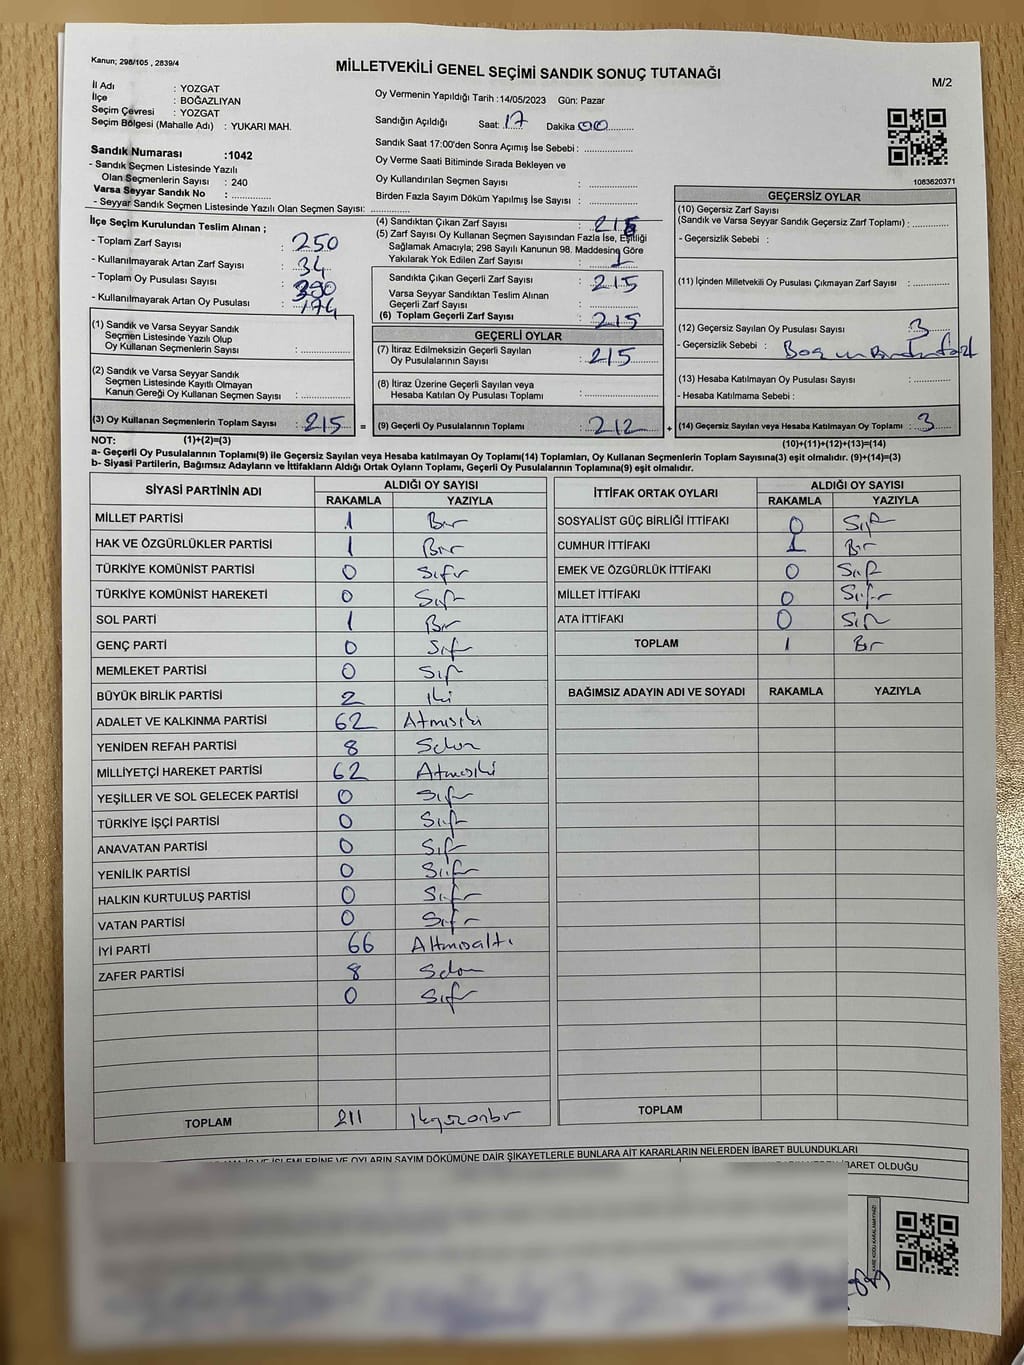 Kanun; 298/105 , 2839/4
MİLLETVEKİLİ GENEL SEÇİMİ SANDIK SONUÇ TUTANAĞI
M/2
İl Adı : YOZGAT
İlçe : BOĞAZLIYAN
Seçim Çevresi : YOZGAT
Seçim Bölgesi (Mahalle Adı) : YUKARI MAH.
Sandık Numarası :1042
- Sandık Seçmen Listesinde Yazılı
Olan Seçmenlerin Sayısı : 240
Varsa Seyyar Sandık No :
- Seyyar Sandık Seçmen Listesinde Yazılı Olan Seçmen Sayısı:
Oy Vermenin Yapıldığı Tarih :14/05/2023 Gün: Pazar
Sandığın Açıldığı Saat: 17 Dakika 00
Sandık Saat 17:00'den Sonra Açımış İse Sebebi :
Oy Verme Saati Bitiminde Sırada Bekleyen ve
Oy Kullandırılan Seçmen Sayısı :
Birden Fazla Sayım Döküm Yapılmış İse Sayısı :
1083620371
İlçe Seçim Kurulundan Teslim Alınan ;
- Toplam Zarf Sayısı : 250
- Kullanılmayarak Artan Zarf Sayısı : 34
- Toplam Oy Pusulası Sayısı :
- Kullanılmayarak Artan Oy Pusulası : 174
(1) Sandık ve Varsa Seyyar Sandık
Seçmen Listesinde Yazılı Olup
Oy Kullanan Seçmenlerin Sayısı :
(2) Sandık ve Varsa Seyyar Sandık
Seçmen Listesinde Kayıtlı Olmayan
Kanun Gereği Oy Kullanan Seçmen Sayısı :
(3) Oy Kullanan Seçmenlerin Toplam Sayısı : 215 =
(4) Sandıktan Çıkan Zarf Sayısı : 216
(5) Zarf Sayısı Oy Kullanan Seçmen Sayısından Fazla İse, Eşitliği
Sağlamak Amacıyla; 298 Sayılı Kanunun 98. Maddesine Göre
Yakılarak Yok Edilen Zarf Sayısı : 1
Sandıkta Çıkan Geçerli Zarf Sayısı : 215
Varsa Seyyar Sandıktan Teslim Alınan
Geçerli Zarf Sayısı :
(6) Toplam Geçerli Zarf Sayısı : 215
GEÇERLİ OYLAR
(7) İtiraz Edilmeksizin Geçerli Sayılan
Oy Pusulalarının Sayısı : 215
(8) İtiraz Üzerine Geçerli Sayılan veya
Hesaba Katılan Oy Pusulası Toplamı :
(9) Geçerli Oy Pusulalarının Toplamı : 212 +
GEÇERSİZ OYLAR
(10) Geçersiz Zarf Sayısı
(Sandık ve Varsa Seyyar Sandık Geçersiz Zarf Toplamı) :
- Geçersizlik Sebebi :
(11) İçinden Milletvekili Oy Pusulası Çıkmayan Zarf Sayısı :
(12) Geçersiz Sayılan Oy Pusulası Sayısı : 3
- Geçersizlik Sebebi :
(13) Hesaba Katılmayan Oy Pusulası Sayısı :
- Hesaba Katılmama Sebebi :
(14) Geçersiz Sayılan veya Hesaba Katılmayan Oy Toplamı : 3
NOT: (1)+(2)=(3)
(10)+(11)+(12)+(13)=(14)
a- Geçerli Oy Pusulalarının Toplamı(9) ile Geçersiz Sayılan veya Hesaba katılmayan Oy Toplamı(14) Toplamları, Oy Kullanan Seçmenlerin Toplam Sayısına(3) eşit olmalıdır. (9)+(14)=(3)
b- Siyasi Partilerin, Bağımsız Adayların ve İttifakların Aldığı Ortak Oyların Toplamı, Geçerli Oy Pusulalarının Toplamına(9) eşit olmalıdır.
SİYASİ PARTİNİN ADI ALDIĞI OY SAYISI
RAKAMLA YAZIYLA
MİLLET PARTİSİ 1 Bir
HAK VE ÖZGÜRLÜKLER PARTİSİ 1 Bir
TÜRKİYE KOMÜNİST PARTİSİ 0 Sıfır
TÜRKİYE KOMÜNİST HAREKETİ 0 Sıfır
SOL PARTİ 1 Bir
GENÇ PARTİ 0 Sıfır
MEMLEKET PARTİSİ 0 Sıfır
BÜYÜK BİRLİK PARTİSİ 2 iki
ADALET VE KALKINMA PARTİSİ 62 Atmışiki
YENİDEN REFAH PARTİSİ 8 Sekiz
MİLLİYETÇİ HAREKET PARTİSİ 62 Atmışiki
YEŞİLLER VE SOL GELECEK PARTİSİ 0 Sıfır
TÜRKİYE İŞÇİ PARTİSİ 0 Sıfır
ANAVATAN PARTİSİ 0 Sıfır
YENİLİK PARTİSİ 0 Sıfır
HALKIN KURTULUŞ PARTİSİ 0 Sıfır
VATAN PARTİSİ 0 Sıfır
İYİ PARTİ 66 Altmışaltı
ZAFER PARTİSİ 8 Sekiz
0 Sıfır
TOPLAM 211 ikiyüzonbir
İTTİFAK ORTAK OYLARI ALDIĞI OY SAYISI
RAKAMLA YAZIYLA
SOSYALİST GÜÇ BİRLİĞİ İTTİFAKI 0 Sıfır
CUMHUR İTTİFAKI 1 Bir
EMEK VE ÖZGÜRLÜK İTTİFAKI 0 Sıfır
MİLLET İTTİFAKI 0 Sıfır
ATA İTTİFAKI 0 Sıfır
TOPLAM 1 Bir
BAĞIMSIZ ADAYIN ADI VE SOYADI RAKAMLA YAZIYLA
TOPLAM
İŞLEMLERİNE VE OYLARIN SAYIM DÖKÜMÜNE DAİR ŞİKAYETLERLE BUNLARA AİT KARARLARIN NELERDEN İBARET BULUNDUKLARI
İBARET OLDUĞU